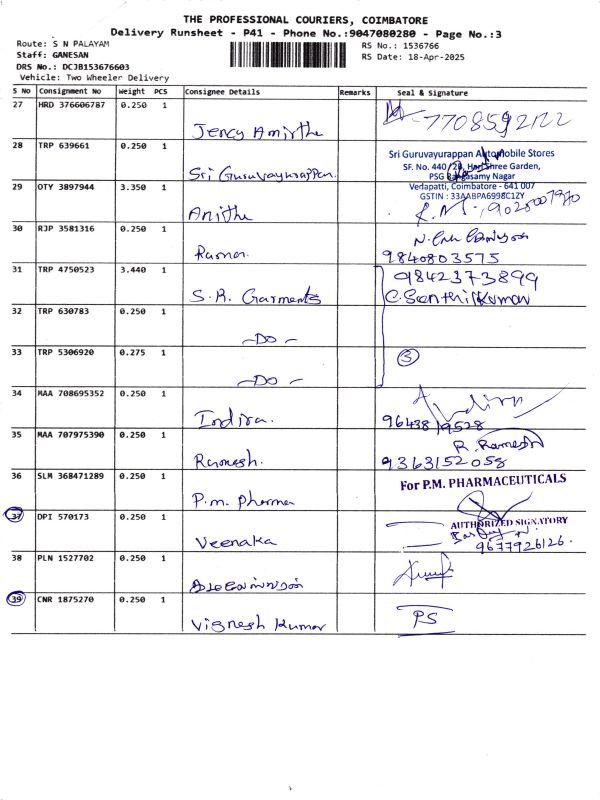 THE PROFESSIONAL COURIERS, COIMBATORE
Delivery Runsheet - P41 - Phone No.:9047080280 - Page No.:3
Route: S N PALAYAM
Staff: GANESAN
DRS No.: DCJB153676603
Vehicle: Two Wheeler Delivery
RS No.: 1536766
RS Date: 18-Apr-2025
S No Consignment No Weight PCS Consignee Details Remarks Seal & Signature
27 HRD 376606787 0.250 1
Jency Amirtha 7708592122
28 TRP 639661 0.250 1
Sri Guruvayurappan
Sri Guruvayurappan Automobile Stores
SF. No. 440/2B, Hari Shree Garden,
PSG Rangasamy Nagar
Vedapatti, Coimbatore - 641 007
GSTIN : 33AABPA6998C1ZY
29 OTY 3897944 3.350 1
Anitha
30 RJP 3581316 0.250 1
Raman 9840803575
31 TRP 4750523 3.440 1
S.R. Garments
9842373899
C. Senthil Kumar
32 TRP 630783 0.250 1
-Do-
33 TRP 5306920 0.275 1
-Do- 3
34 MAA 708695352 0.250 1
Indira. Indira
9643819528
35 MAA 707975390 0.250 1
Ramesh. R. Ramesh
9363152058
36 SLM 368471289 0.250 1
P.m. pharma
For P.M. PHARMACEUTICALS
AUTHORIZED SIGNATORY
37 DPI 570173 0.250 1
Veenaka 9677926126.
38 PLN 1527702 0.250 1
39 CNR 1875270 0.250 1
Vignesh Kumar PS